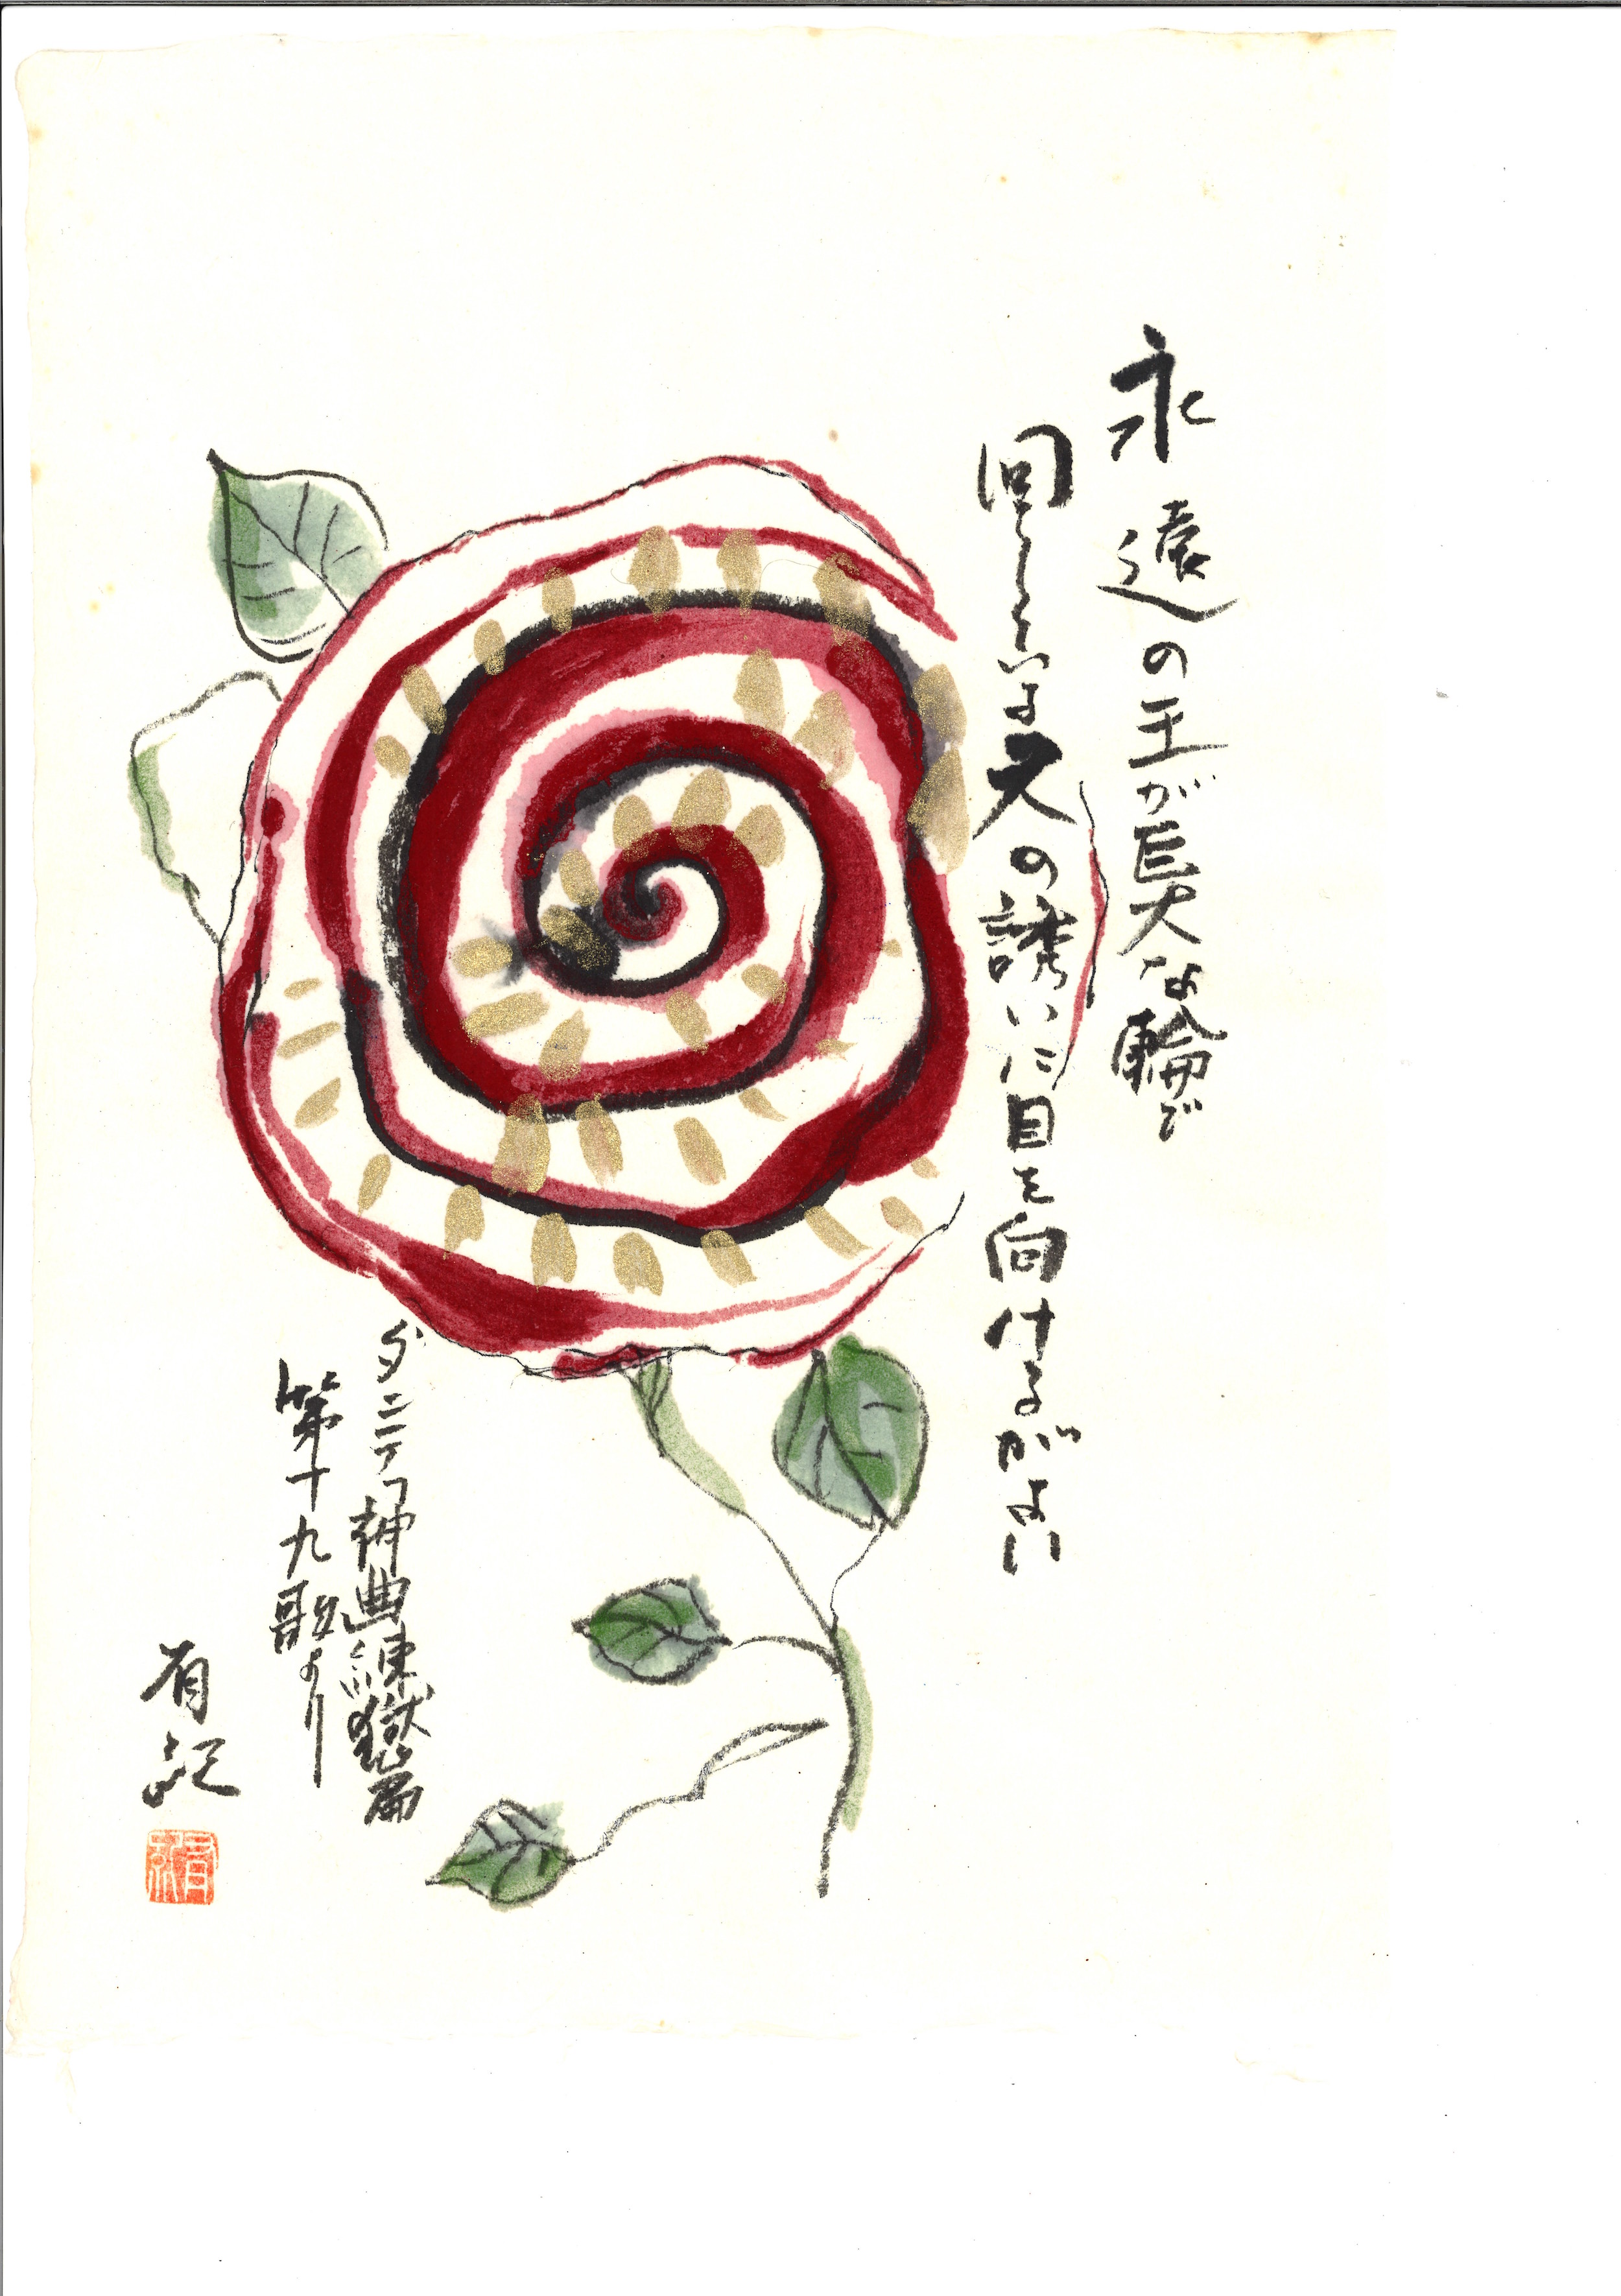 永遠の王が巨大な輪で
回している天の誘いに目を向けるがよい
ダンテ神曲煉獄篇
第十九歌より
有記